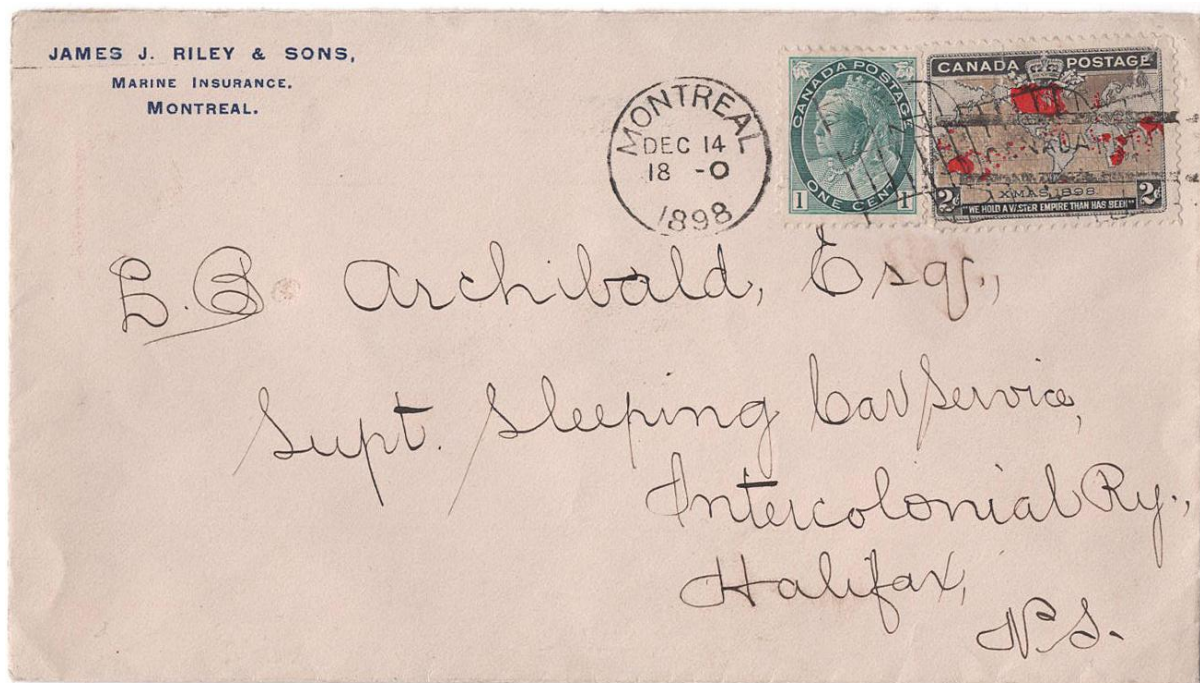 JAMES J. RILEY & SONS,
MARINE INSURANCE.
MONTREAL.
MONTREAL
DEC 14
18 - 0
1898
CANADA POSTAGE
ONE CENT
1 1
CANADA POSTAGE
CANADA
XMAS 1898
2c 2c
"WE HOLD A VASTER EMPIRE THAN HAS BEEN"
L. B. Archibald, Esq.,
Supt. Sleeping Car Service,
Intercolonial Ry.,
Halifax,
N.S.